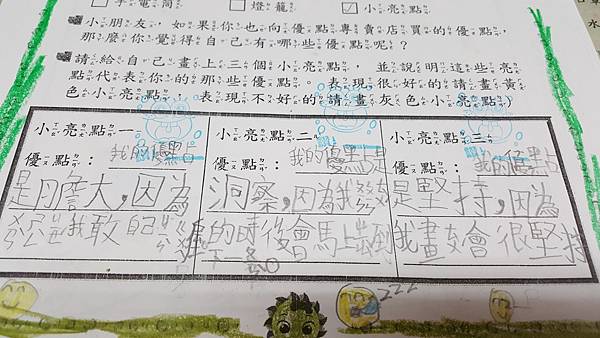 手電筒 燈籠 小亮點
小朋友,如果你也向優點專賣店買的優點,
那麼你覺得自己有哪些優點呢?
請給自己畫上三個小亮點,並說明這些亮
點代表你的那些優點。
色小亮點,表現不好的請畫灰色小亮點)
小亮點一
優點:我的優點
是膽大,因為
我敢自己
小亮點二
優點:我的優點是
洞察,因為我發
的時後會馬上到
下一
小亮點三
優點:我的優點
是堅持,因為
我畫會很堅持
zzz